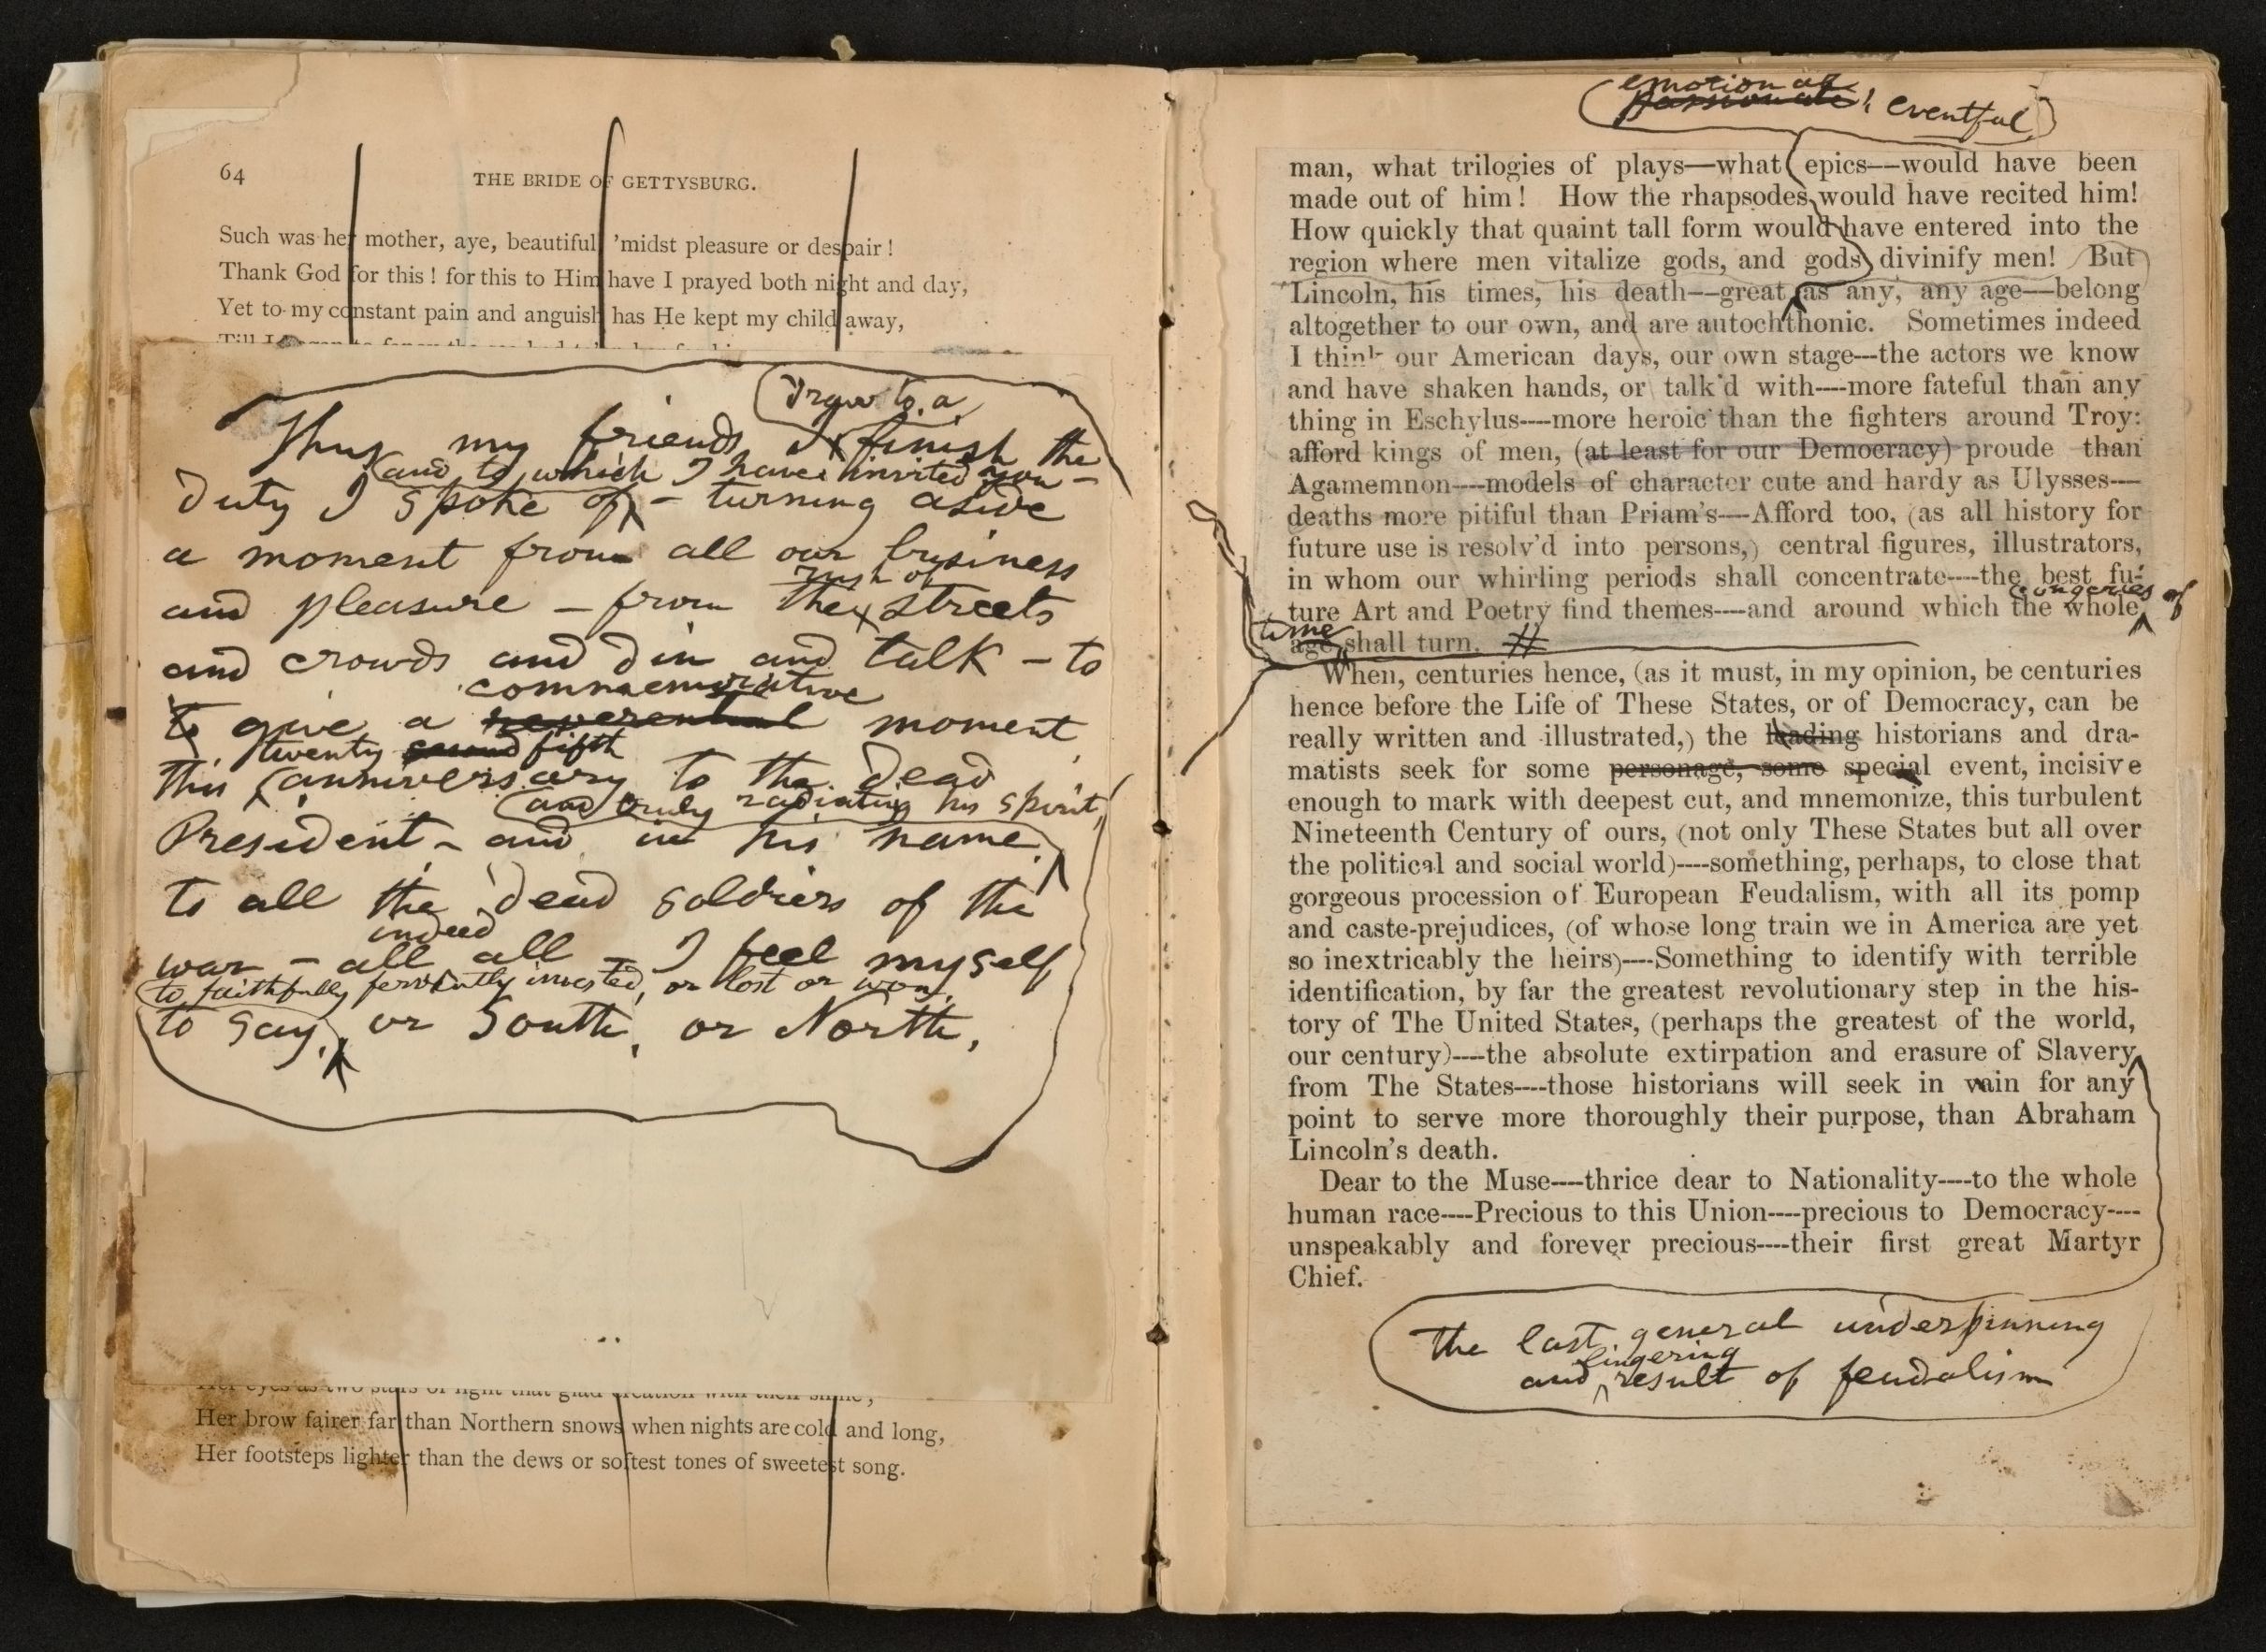 64
THE BRIDE OF GETTYSBURG.
Such was her mother, aye, beautiful 'midst pleasure or despair!
Thank God for this! for this to Him have I prayed both night and day,
Yet to my constant pain and anguish has He kept my child away,
Draw to a
Thus my friends I finish the
(and to which I have invited you –
duty I spoke of – turning aside
a moment from all our business
rush of
and pleasure – from the streets
and crowds and din and talk – to
commemorative
to give a reverential moment
twenty second fifth
this anniversary to the dead
(and truly radiating his spirit,
President – and in his name,
to all the dead soldiers of the
indeed
war – all all – I feel myself
to faithfully fervently invested, or lost or won,
to say, or South, or North,
Her eyes as two stars of light that glad creation with their shine;
Her brow fairer far than Northern snows when nights are cold and long,
Her footsteps lighter than the dews or softest tones of sweetest song.
emotional
passionate, eventful
man, what trilogies of plays—what epics—would have been
made out of him! How the rhapsodes would have recited him!
How quickly that quaint tall form would have entered into the
region where men vitalize gods, and gods divinify men! But
Lincoln, his times, his death—great as any, any age—belong
altogether to our own, and are autochthonic. Sometimes indeed
I think our American days, our own stage---the actors we know
and have shaken hands, or talk'd with----more fateful than any
thing in Eschylus----more heroic than the fighters around Troy:
afford kings of men, (at least for our Democracy) proude than
Agamemnon----models of character cute and hardy as Ulysses---
deaths more pitiful than Priam's---Afford too, (as all history for
future use is resolv'd into persons,) central figures, illustrators,
in whom our whirling periods shall concentrate----the best fu-
congeries of
ture Art and Poetry find themes----and around which the whole
time
age shall turn. #
When, centuries hence, (as it must, in my opinion, be centuries
hence before the Life of These States, or of Democracy, can be
really written and illustrated,) the leading historians and dra-
matists seek for some personage, some special event, incisive
enough to mark with deepest cut, and mnemonize, this turbulent
Nineteenth Century of ours, (not only These States but all over
the political and social world)----something, perhaps, to close that
gorgeous procession of European Feudalism, with all its pomp
and caste-prejudices, (of whose long train we in America are yet
so inextricably the heirs)----Something to identify with terrible
identification, by far the greatest revolutionary step in the his-
tory of The United States, (perhaps the greatest of the world,
our century)----the absolute extirpation and erasure of Slavery
from The States----those historians will seek in vain for any
point to serve more thoroughly their purpose, than Abraham
Lincoln's death.
Dear to the Muse----thrice dear to Nationality----to the whole
human race----Precious to this Union----precious to Democracy----
unspeakably and forever precious----their first great Martyr
Chief.
the last general underpinning
lingering
and result of feudalism